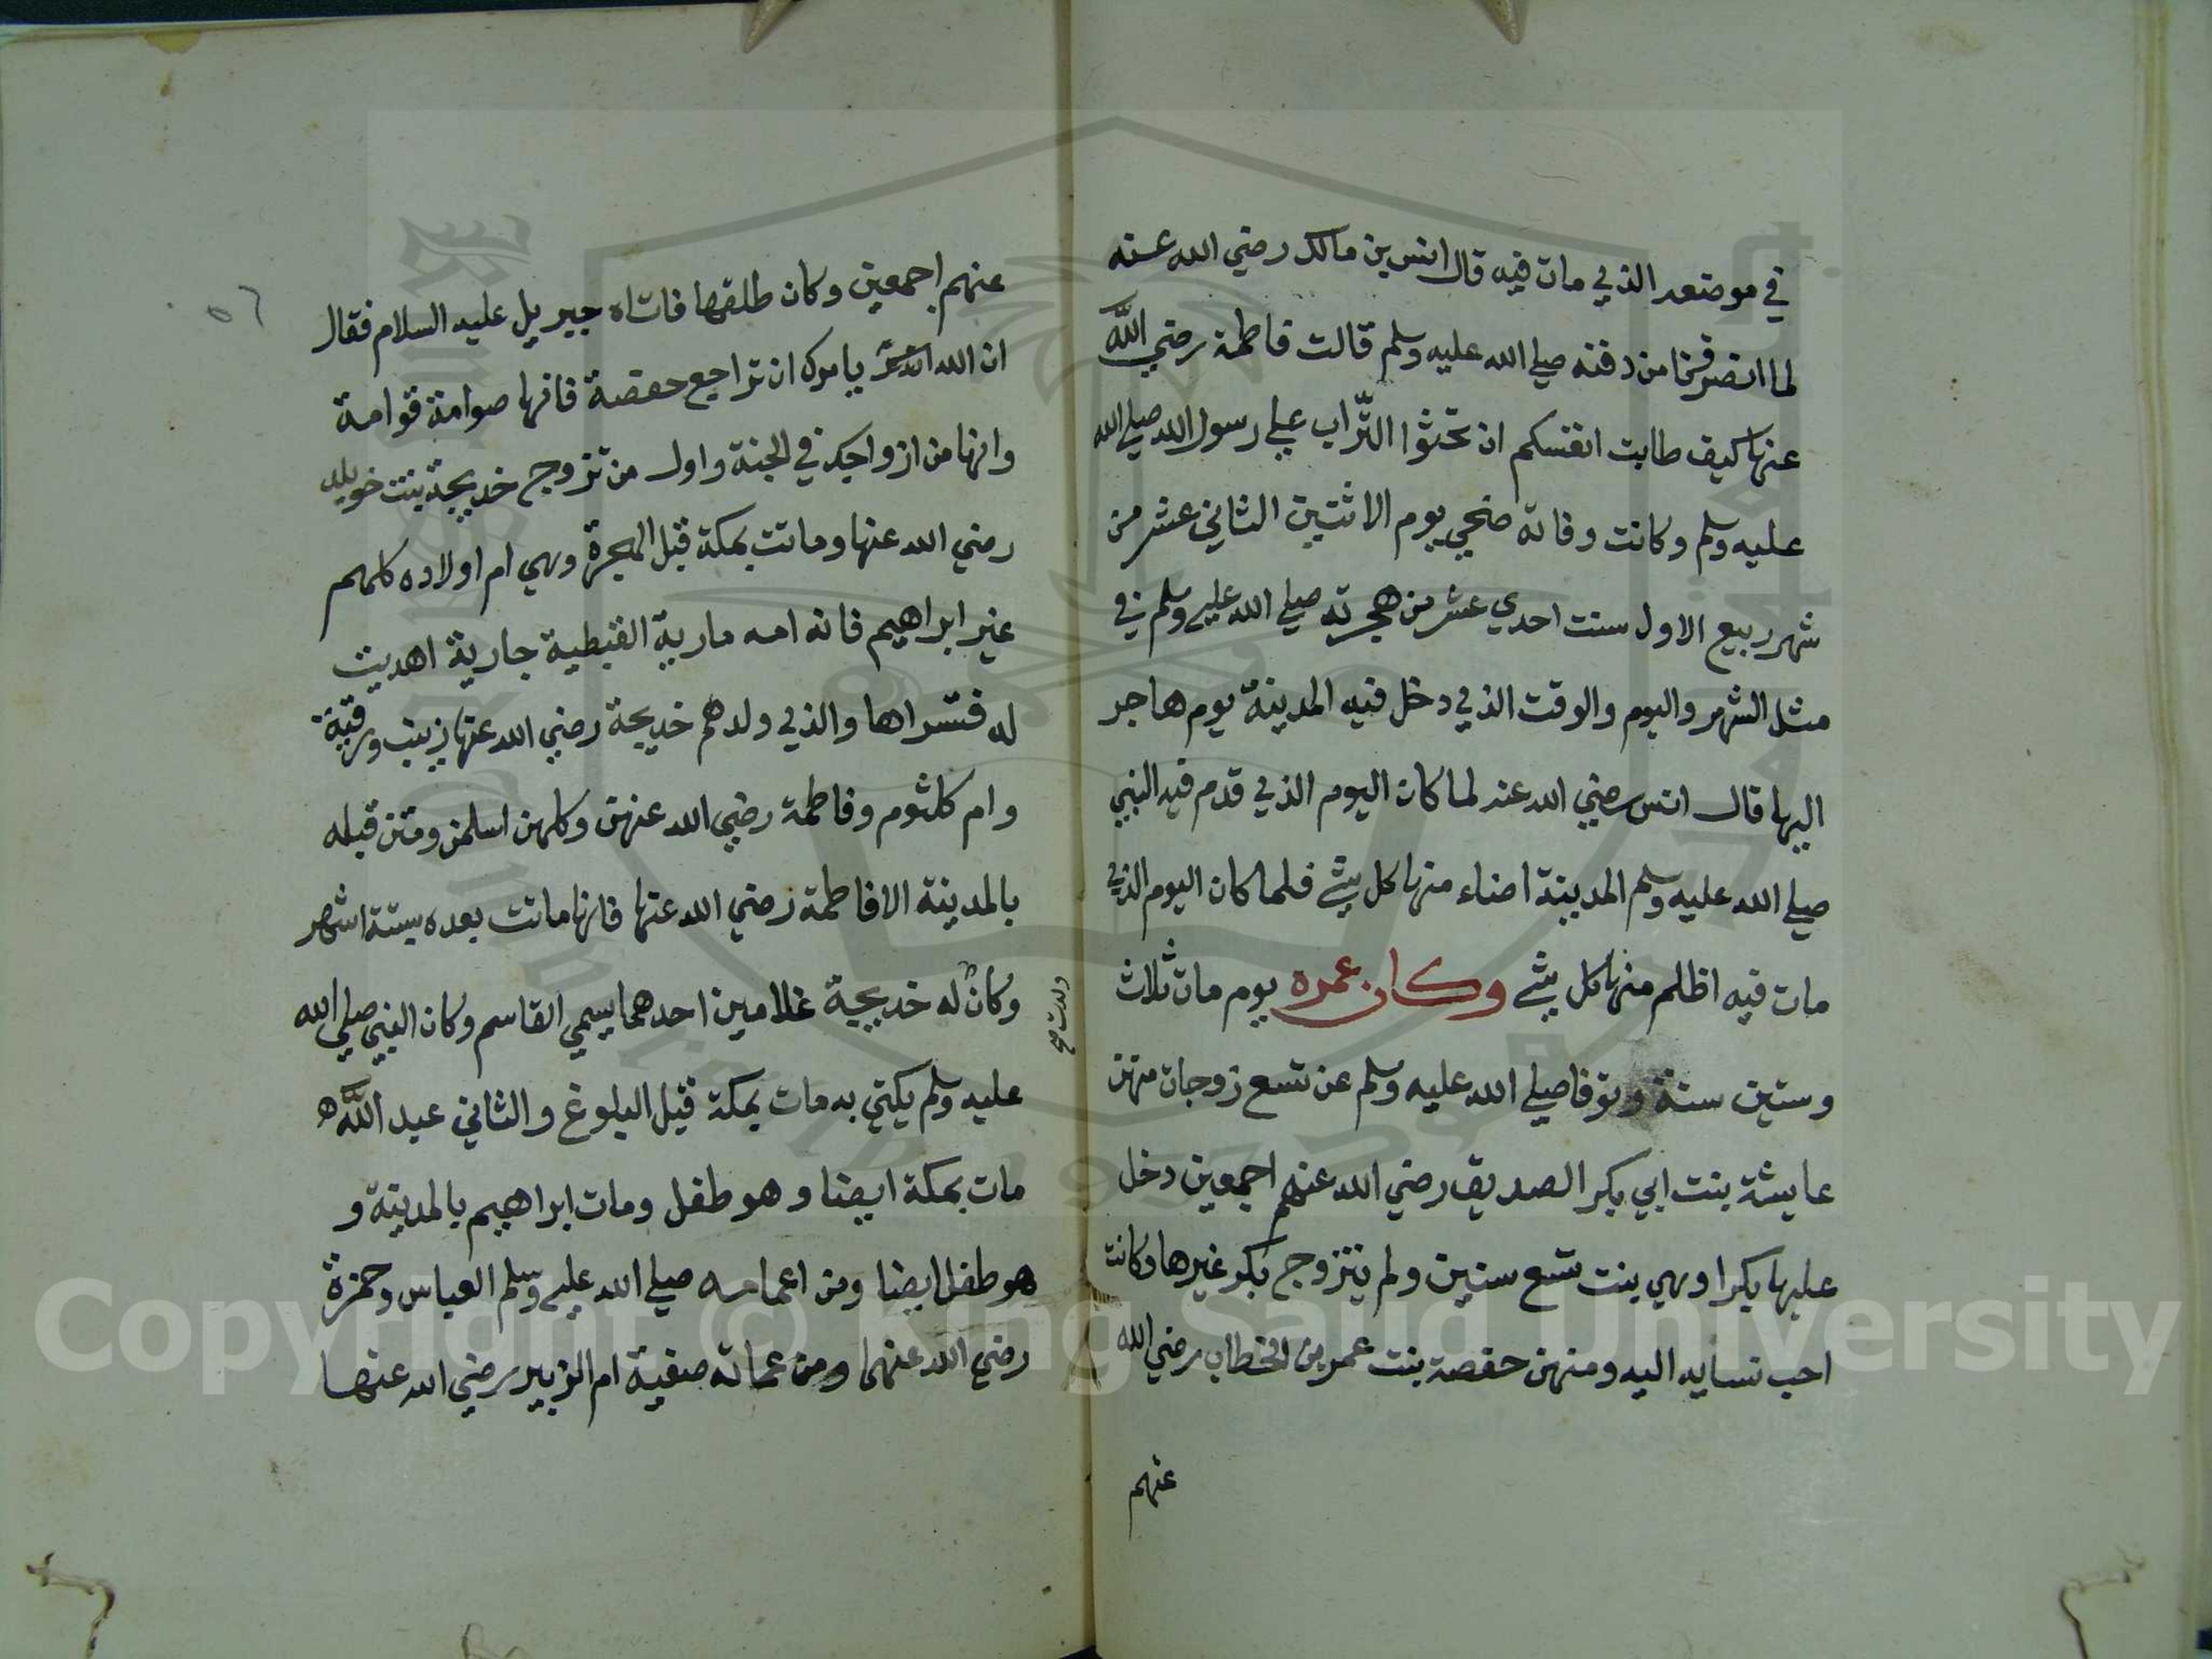 في موضعه الذي مات فيه قال انس بن مالك رضي الله عنه
لما انصرفنا من دفنه صلي الله عليه وسلم قالت فاطمة رضي الله
عنها كيف طابت انفسكم ان تحثوا التراب علي رسول الله صلي الله
عليه وسلم وكانت وفاته ضحي يوم الاثنين الثاني عشر من
شهر ربيع الاول سنت احدي عشر من هجرته صلي الله عليه وسلم في
مثل الشهر واليوم والوقت الذي دخل فيه المدينة يوم هاجر
اليها قال انس رضي الله عنه لما كان اليوم الذي قدم فيه النبي
صلي الله عليه وسلم المدينة اضاء منها كل شيء فلما كان اليوم الذي
مات فيه اظلم منها كل شيء وكان عمره يوم مات ثلاث
وستين سنة وتوفا صلي الله عليه وسلم عن تسع زوجات منهن
عايشة بنت ابي بكر الصديق رضي الله عنهم اجمعين دخل
عليها بكرا وهي بنت تسع سنين ولم يتزوج بكر غيرها وكانت
احب نسايه اليه ومنهن حفصة بنت عمر بن الخطاب رضي الله
عنهم
٥٦
عنهم اجمعين وكان طلقها فاتاه جبريل عليه السلام فقال
ان الله يامرك ان تراجع حفصة فانها صوامة قوامة
وانها من ازواجك في الجنة واول من تزوج خديجة بنت خويلد
رضي الله عنها وماتت بمكة قبل الهجرة وهي ام اولاده كلهم
غير ابراهيم فانه امه مارية القبطية جارية اهديت
له فتسراها والذي ولدهم خديجة رضي الله عنها زينب ورقية
وام كلثوم وفاطمة رضي الله عنهن وكلهن اسلمن ومتن قبله
بالمدينة الا فاطمة رضي الله عنها فانها ماتت بعده بستة اشهر
وكان له خديجة غلامين احدهما يسمي القاسم وكان النبي صلي الله
ولدت صح
عليه وسلم يكتي به مات بمكة قبل البلوغ والثاني عبد الله
مات بمكة ايضا وهو طفل ومات ابراهيم بالمدينة و
هو طفل ايضا ومن اعمامه صلي الله عليه وسلم العباس وحمزة
رضي الله عنهما ومن عماته صفية ام الزبير رضي الله عنها
Copyright © King Saud University